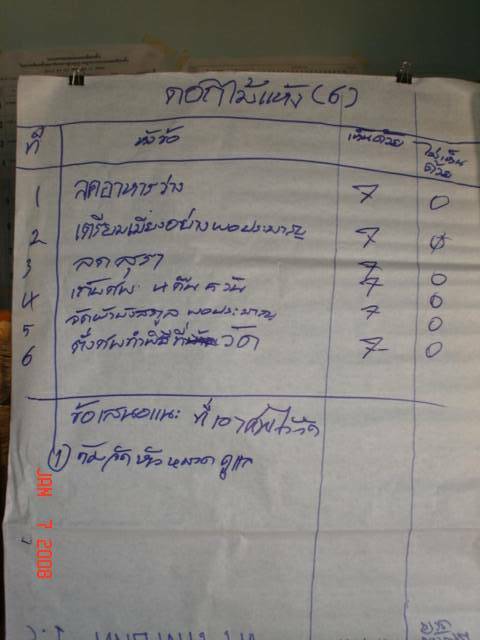 ดอกไม้แห้ง (6)
ที่ หัวข้อ เห็นด้วย ไม่เห็นด้วย
1 ลดอาหารว่าง 7 0
2 เตรียมเมี่ยงอย่างพอประมาณ 7 0
3 ลดสุรา 7 0
4 เก็บศพ 4 คืน 5 วัน 7 0
5 จัดผ้าบังสกุล พอประมาณ 7 0
6 ตั้งศพทำพิธีที่ วัด 7 0
ข้อเสนอแนะ ที่เอาศพไว้วัด
1) หัวหมวด ดูแล
JAN 7 2008